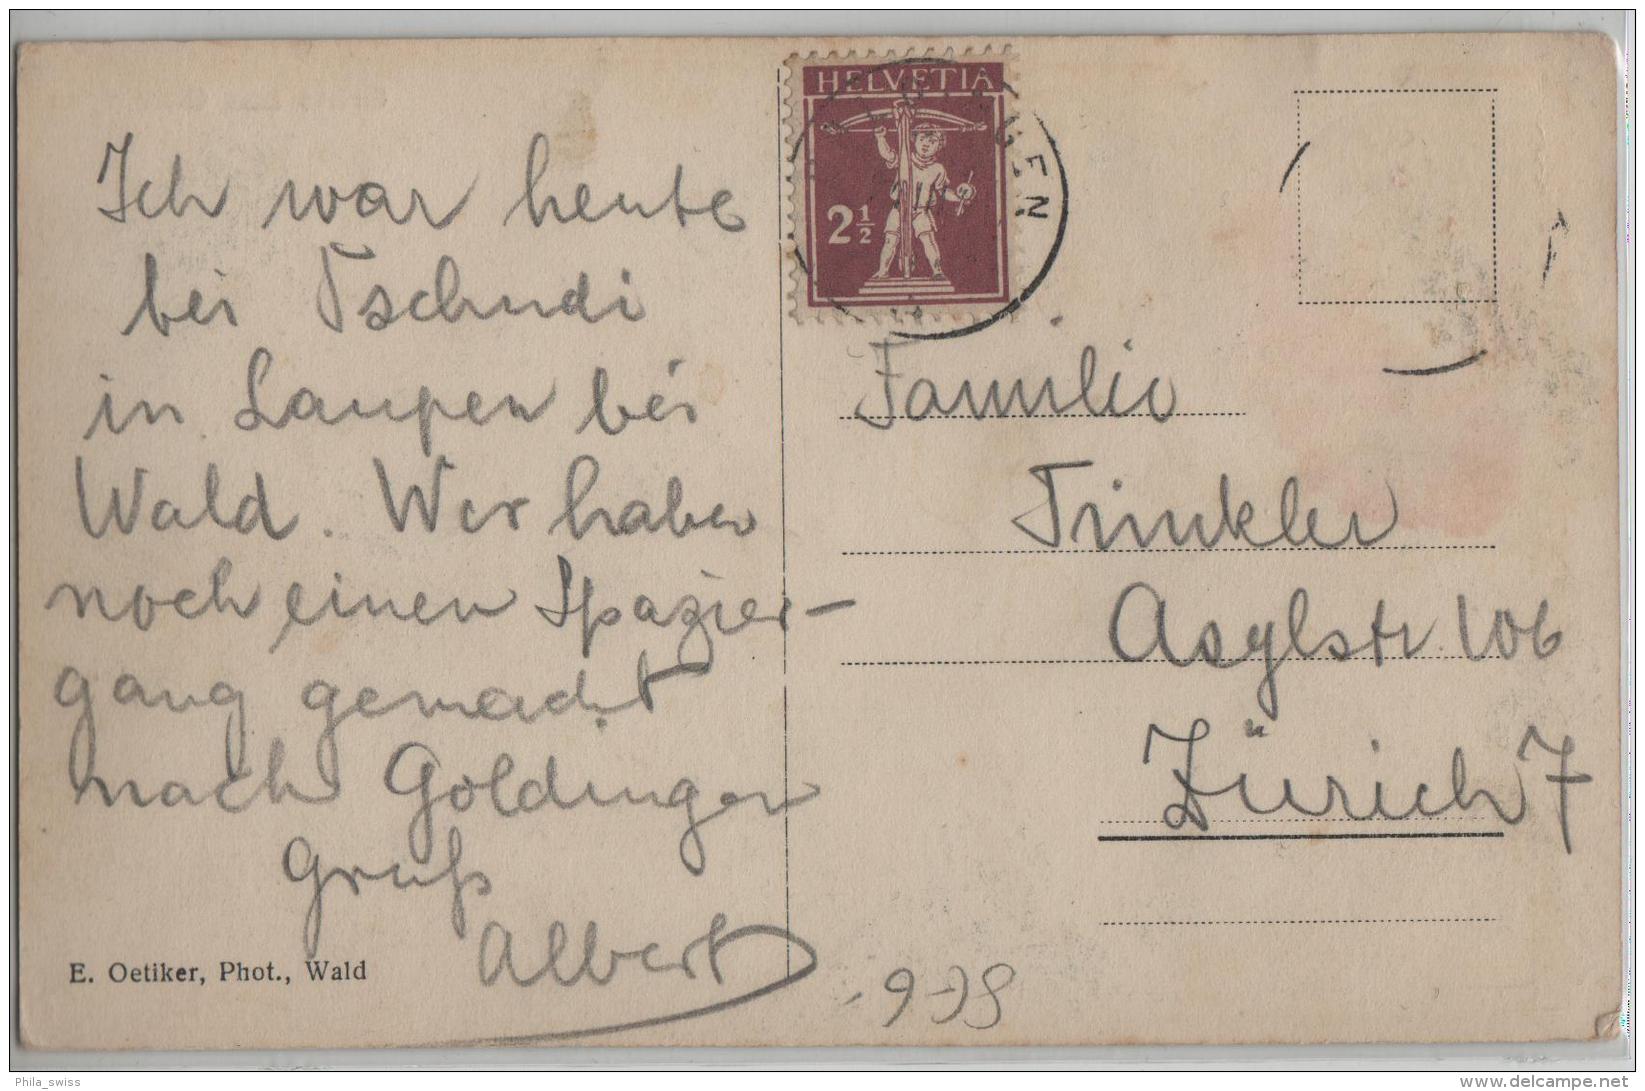 HELVETIA
2½
Ich war heute
bei Tschudi
in Laupen bei
Wald. Wir haben
noch einen Spazier-
gang gemacht
nach Goldingen
Gruß
Albert
E. Oetiker, Phot., Wald
Familie
Trinkler
Asylstr. 106
Zürich 7
Phila_swiss
www.delcampe.net